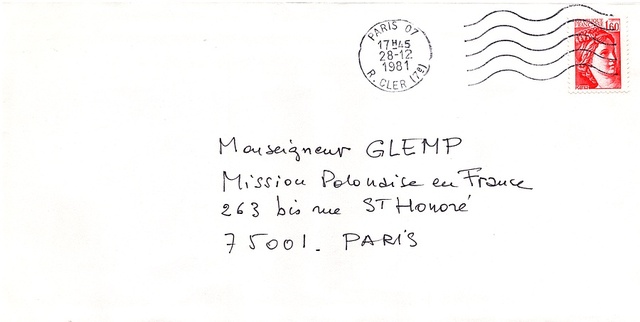 PARIS 07
17H45
28-12
1981
R. CLER (7e)
1,60
Monseigneur GLEMP
Mission Polonaise en France
263 bis rue ST Honoré
75001. PARIS